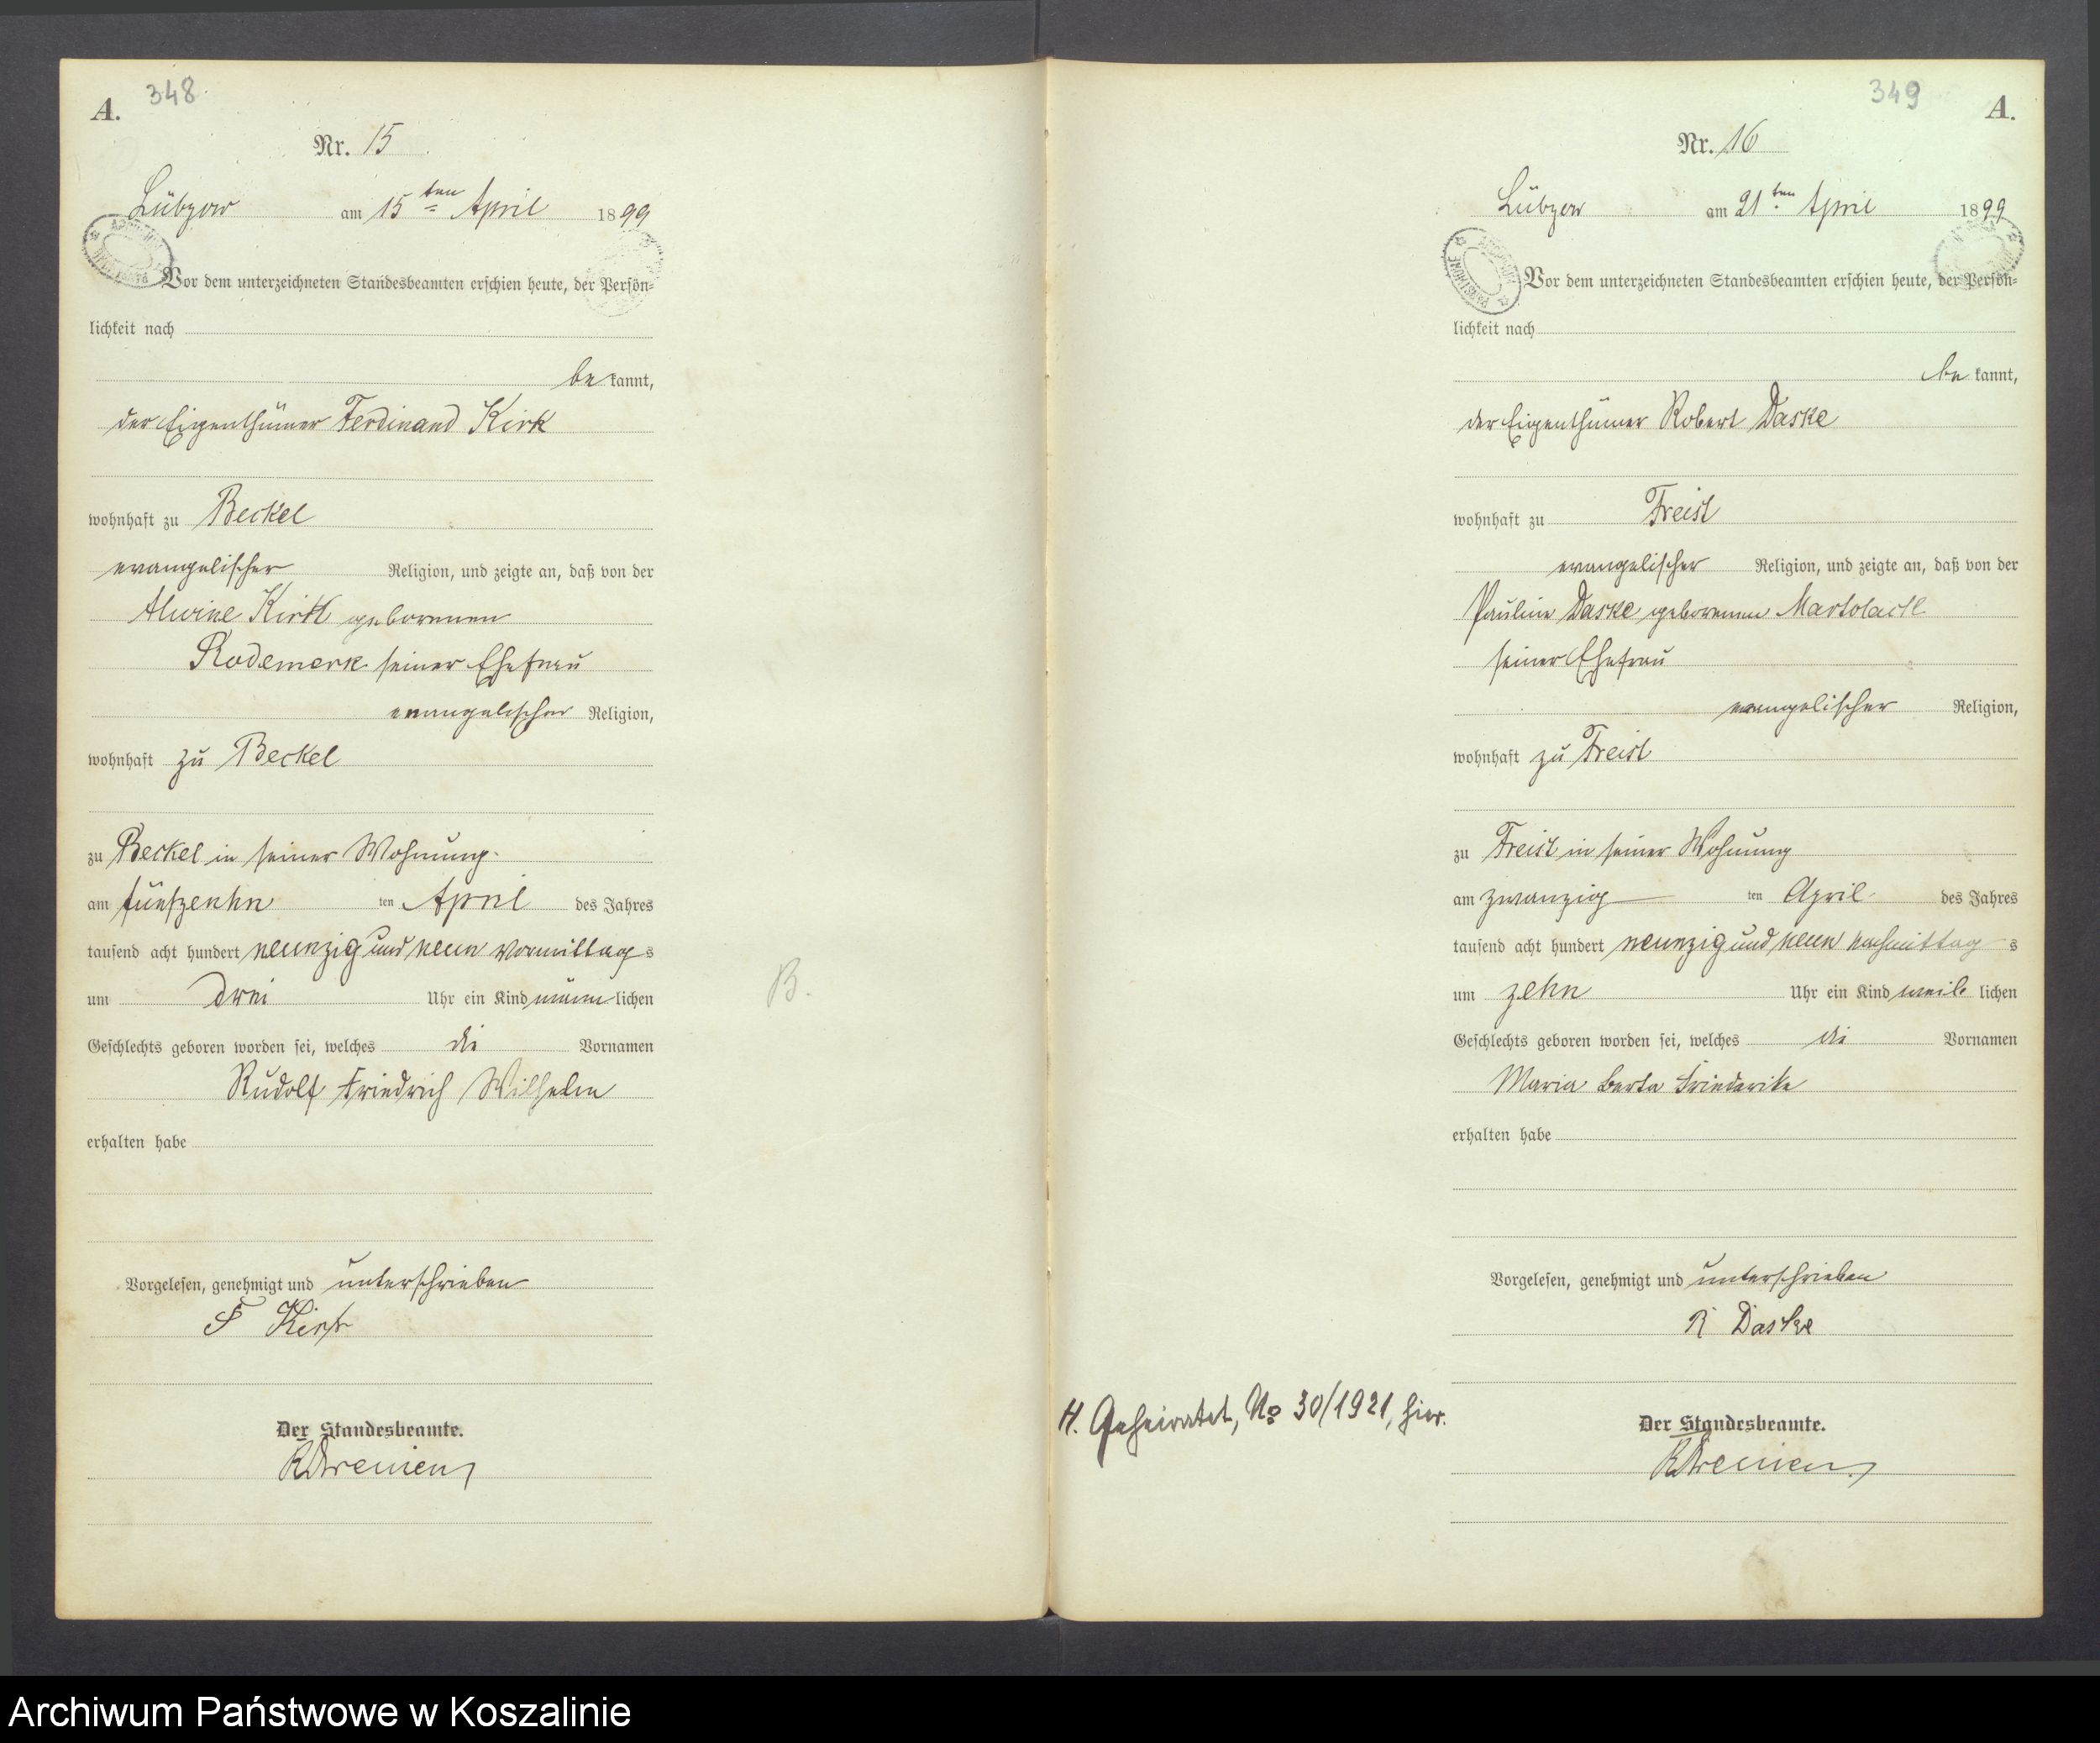 A. 348
Nr. 15
Lübzow am 15ten April 1899
Vor dem unterzeichneten Standesbeamten erschien heute, der Persön-
lichkeit nach
be kannt,
der Eigenthümer Ferdinand Kirk
wohnhaft zu Beckel
evangelischer Religion, und zeigte an, daß von der
Alwine Kirk geborenen
Rodemerk seiner Ehefrau
evangelischer Religion,
wohnhaft zu Beckel
zu Beckel in seiner Wohnung.
am fünfzenhn ten April des Jahres
tausend acht hundert neunzig und neun vormittag s
um drei Uhr ein Kind männ lichen
Geschlechts geboren worden sei, welches die Vornamen
Rudolf Friedrich Wilhelm
erhalten habe
Vorgelesen, genehmigt und unterschrieben
F Kirk
Der Standesbeamte.
B.
349 A.
Nr. 16
Lübzow am 21ten April 1899
Vor dem unterzeichneten Standesbeamten erschien heute, der Persön-
lichkeit nach
be kannt,
der Eigenthümer Robert Daske
wohnhaft zu Freist
evangelischer Religion, und zeigte an, daß von der
Pauline Daske geborenen
seiner Ehefrau
evangelischer Religion,
wohnhaft zu Freist
zu Freist in seiner Wohnung
am zwanzig ten April des Jahres
tausend acht hundert neunzig und neun nachmittag s
um zehn Uhr ein Kind weib lichen
Geschlechts geboren worden sei, welches die Vornamen
Maria Berta Friederike
erhalten habe
Vorgelesen, genehmigt und unterschrieben
R Daske
H. Geheiratet, No 30/1921, hier.
Der Standesbeamte.
Archiwum Państwowe w Koszalinie